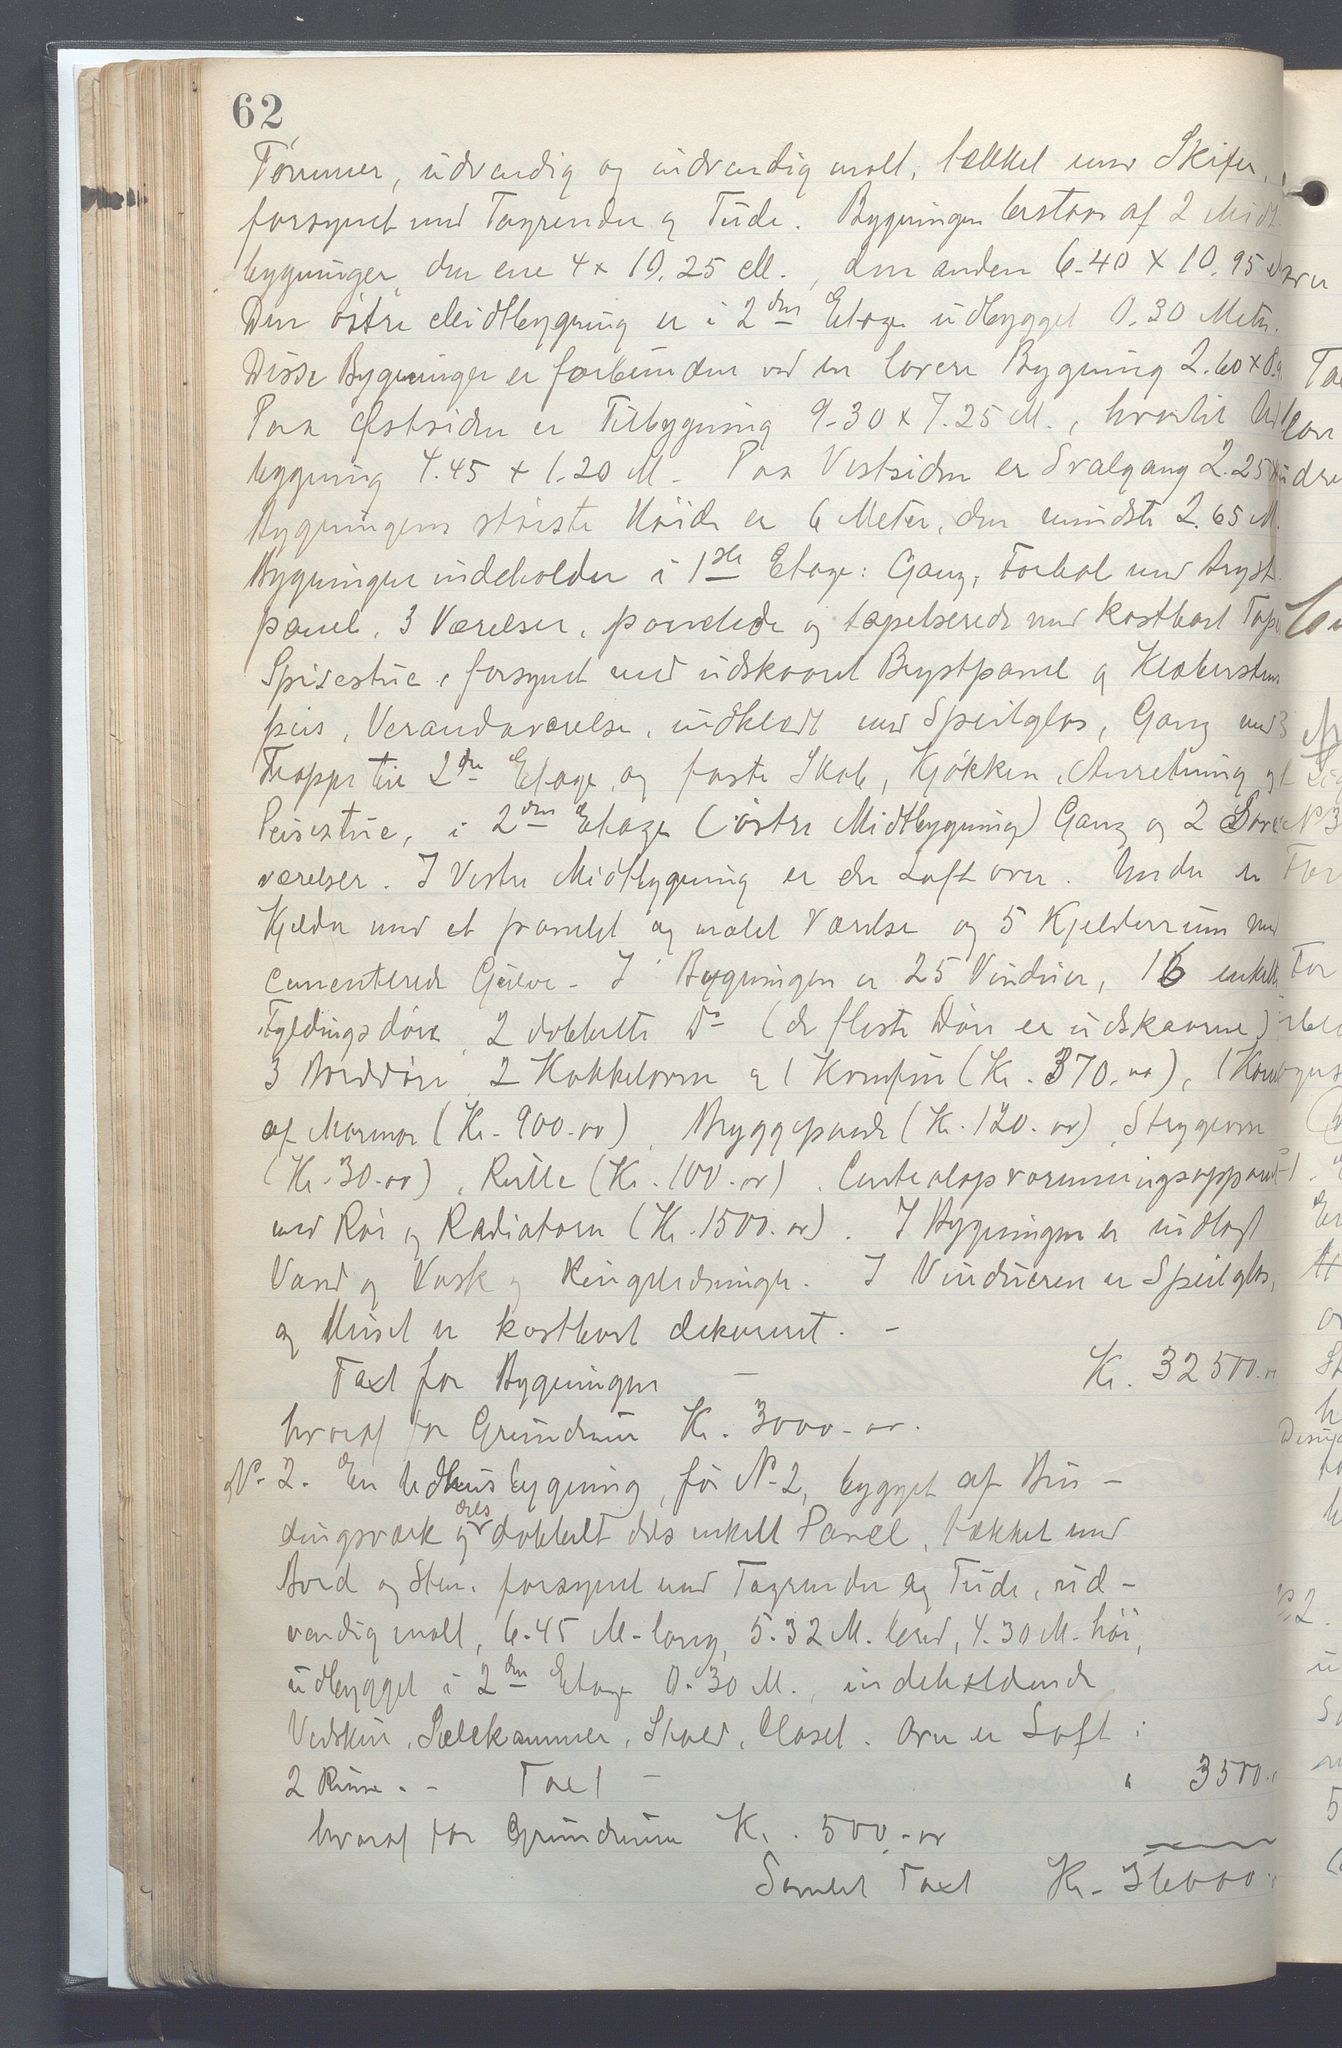 62
Tømmer, udvendig og indvendig malt, tækket med Skifer,
forsynet med Tagrender og Tude. Bygningen bestaar af 2 Midt
bygninger, den ene 4 x 10.25 M., den anden 6.40 x 10.95
Den østre Midtbygning er i 2den Etage udbygget 0.30 Meter.
Disse Bygninger er forbunden ved en lavere Bygning 2.60 x
Paa Østsiden er Tilbygning 9.30 x 7.25 M., hvortil
bygning 4.45 x 1.20 M - Paa Vestsiden er Svalgang 2.25
Bygningens største Höide er 6 Meter, den mindste 2.65 M.
Bygningen indeholder i 1ste Etage: Gang, Forhal med Bryst
panel, 3 Værelser, panelede og tapetserede med kostbart Tape
Spisestue, forsynet med udskaaret Brystpanel og Klæbersten
peis, Verandaværelse, indklædt med Speilglas, Gang med
Trappe til 2den Etage, og faste Skab, Kjøkken, Anretning og
Peisestue, i 2den Etage (østre Midtbygning) Gang og 2 Sove
værelser. I Vestre Midtbygning er der Loft over. Under er
Kjelder med et panelet og malet Værelse og 5 Kjelderrum med
cementerede Gulve - I Bygningen er 25 Vinduer, 16 enkelte
Fyldingsdøre, 2 dobbelte Do (de fleste Döre er udskaarne)
3 Borddöre, 2 Kakkelovne og 1 Komfur (Kr. 370.00), 1
af Marmor (Kr. 900.00), Bryggepande (Kr. 120.00), Strygeovn
(Kr. 30.00), Rulle (Kr. 100.00), Centralopvarmningsapparat
med Rör og Radiatorer (Kr. 1500.00). I Bygningen er indlagt
Vand og Vask og Ringeledninger. I Vinduerne er Speilglas,
og Huset er kostbart dekoreret. -
Taxt for Bygningen - Kr. 32500.00
hvoraf for Grundmur Kr. 3000.00.
No 2. En Udhusbygning, för No 2, bygget af Bin-
dingsværk og dels dobbelt dels enkelt Panel, tækket med
Bord og Sten, forsynet med Tagrender og Tude, ud-
vendig malt, 6.45 M. lang, 5.32 M. bred, 4.30 M. höi,
udbygget i 2den Etage 0.30 M., indeholdende
Vedskur, Sælekammer, Stald, Closet. Over er Loft i
2 Rum. - Taxt - " 3500.
hvoraf for Grundmur Kr. 500.00
Samlet Taxt Kr. 36000.